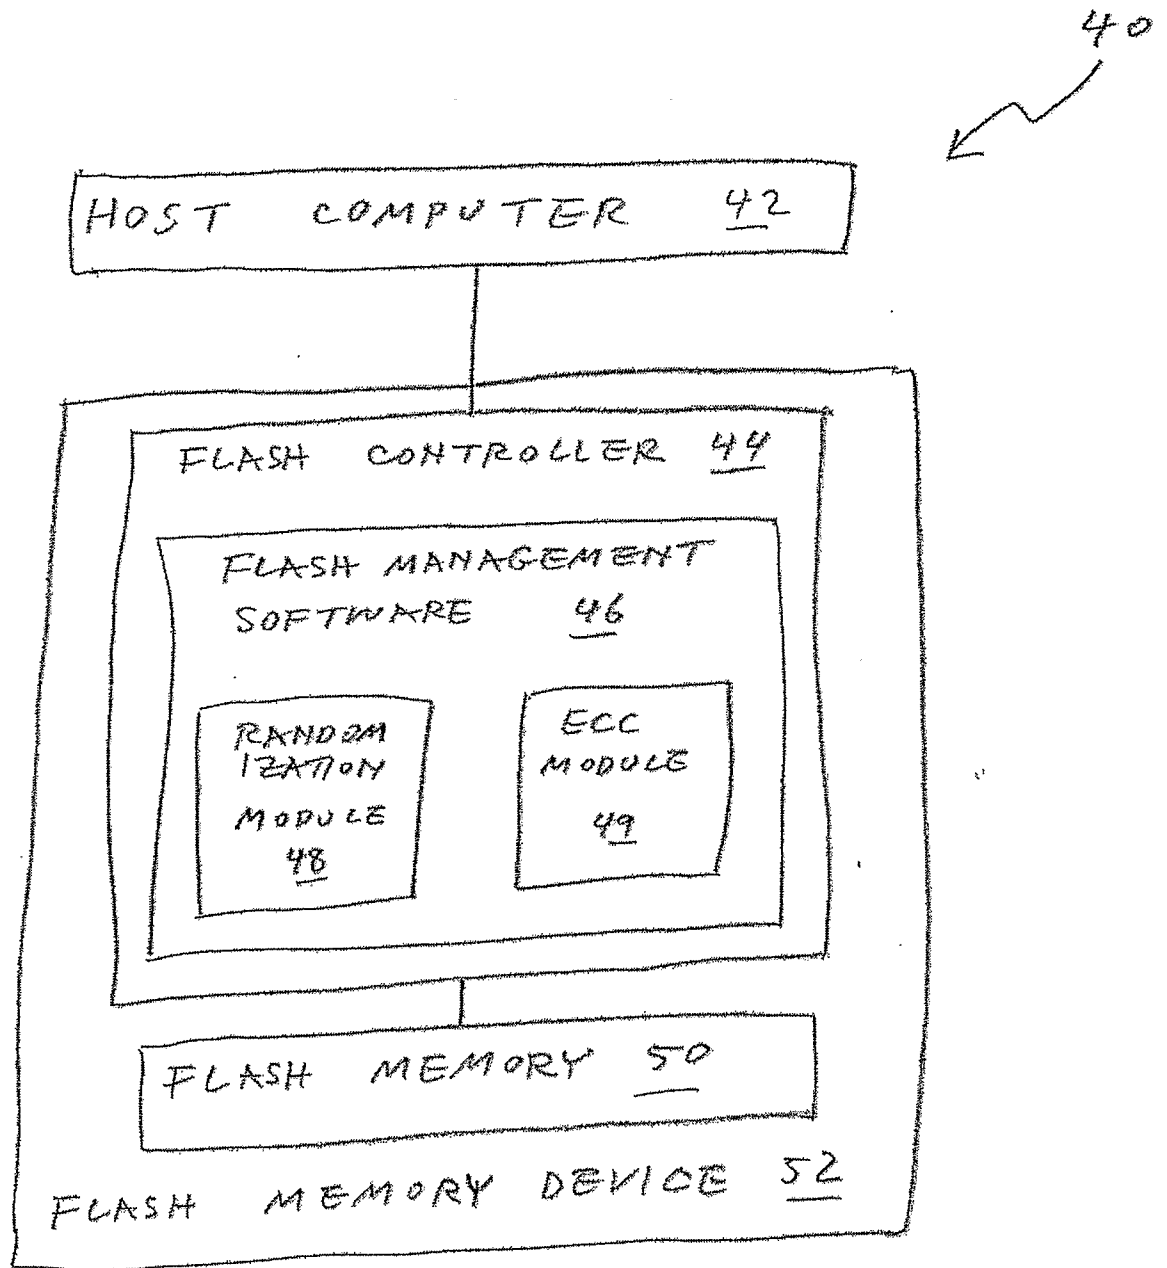 40
HOST COMPUTER 42
FLASH CONTROLLER 44
FLASH MANAGEMENT
SOFTWARE 46
RANDOM
IZATION
MODULE
48
ECC
MODULE
49
FLASH MEMORY 50
FLASH MEMORY DEVICE 52